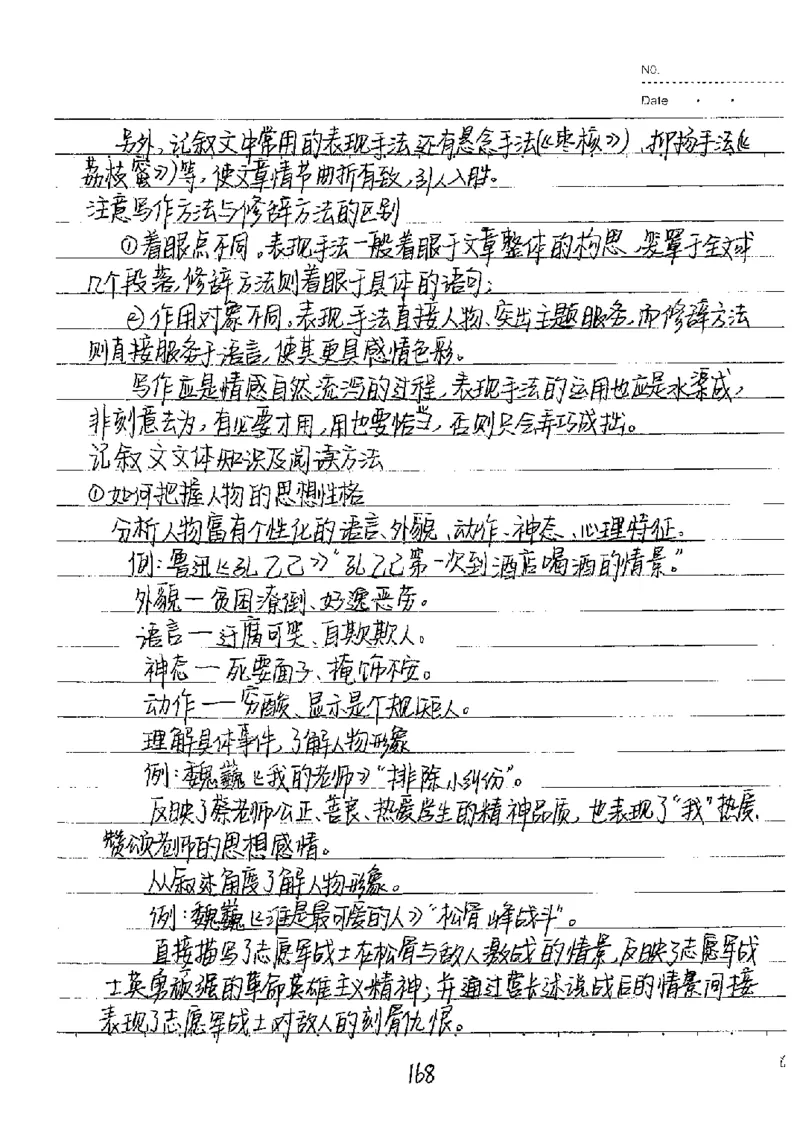 NO.
Date
另外，记叙文中常用的表现手法还有悬念手法(《枣核》)、抑扬手法(《
荔枝蜜》)等，使文章情节曲折有致，引人入胜。
注意写作方法与修辞方法的区别
①着眼点不同。表现手法一般着眼于文章整体的构思，笼罩于全文或
几个段落，修辞方法则着眼于具体的语句；
②作用对象不同。表现手法直接人物、突出主题服务，而修辞方法
则直接服务于语言，使其更具感情色彩。
写作应是情感自然流泻的过程，表现手法的运用也应是水渠成，
非刻意去为，有必要才用，用也要恰当，否则只会弄巧成拙。
记叙文文体知识及阅读方法
①如何把握人物的思想性格
分析人物富有个性化的语言、外貌、动作、神态、心理特征。
例：鲁迅《孔乙己》“孔乙己第一次到酒店喝酒的情景。”
外貌一贫困潦倒、好逸恶劳。
语言一迂腐可笑、自欺欺人。
神态一死要面子、掩饰不安。
动作一穷酸、显示是个规矩人。
理解具体事件，了解人物形象
例：魏巍《我的老师》“排除小纠纷”。
反映了蔡老师公正、善良、热爱学生的精神品质，也表现了“我”热爱、
赞颂老师的思想感情。
从叙述角度了解人物形象。
例：魏巍《谁是最可爱的人》“松骨峰战斗”。
直接描写了志愿军战士在松骨与敌人激战的情景，反映了志愿军战
士英勇顽强的革命英雄主义精神；并通过营长述说战后的情景间接
表现了志愿军战士对敌人的刻骨仇恨。
168